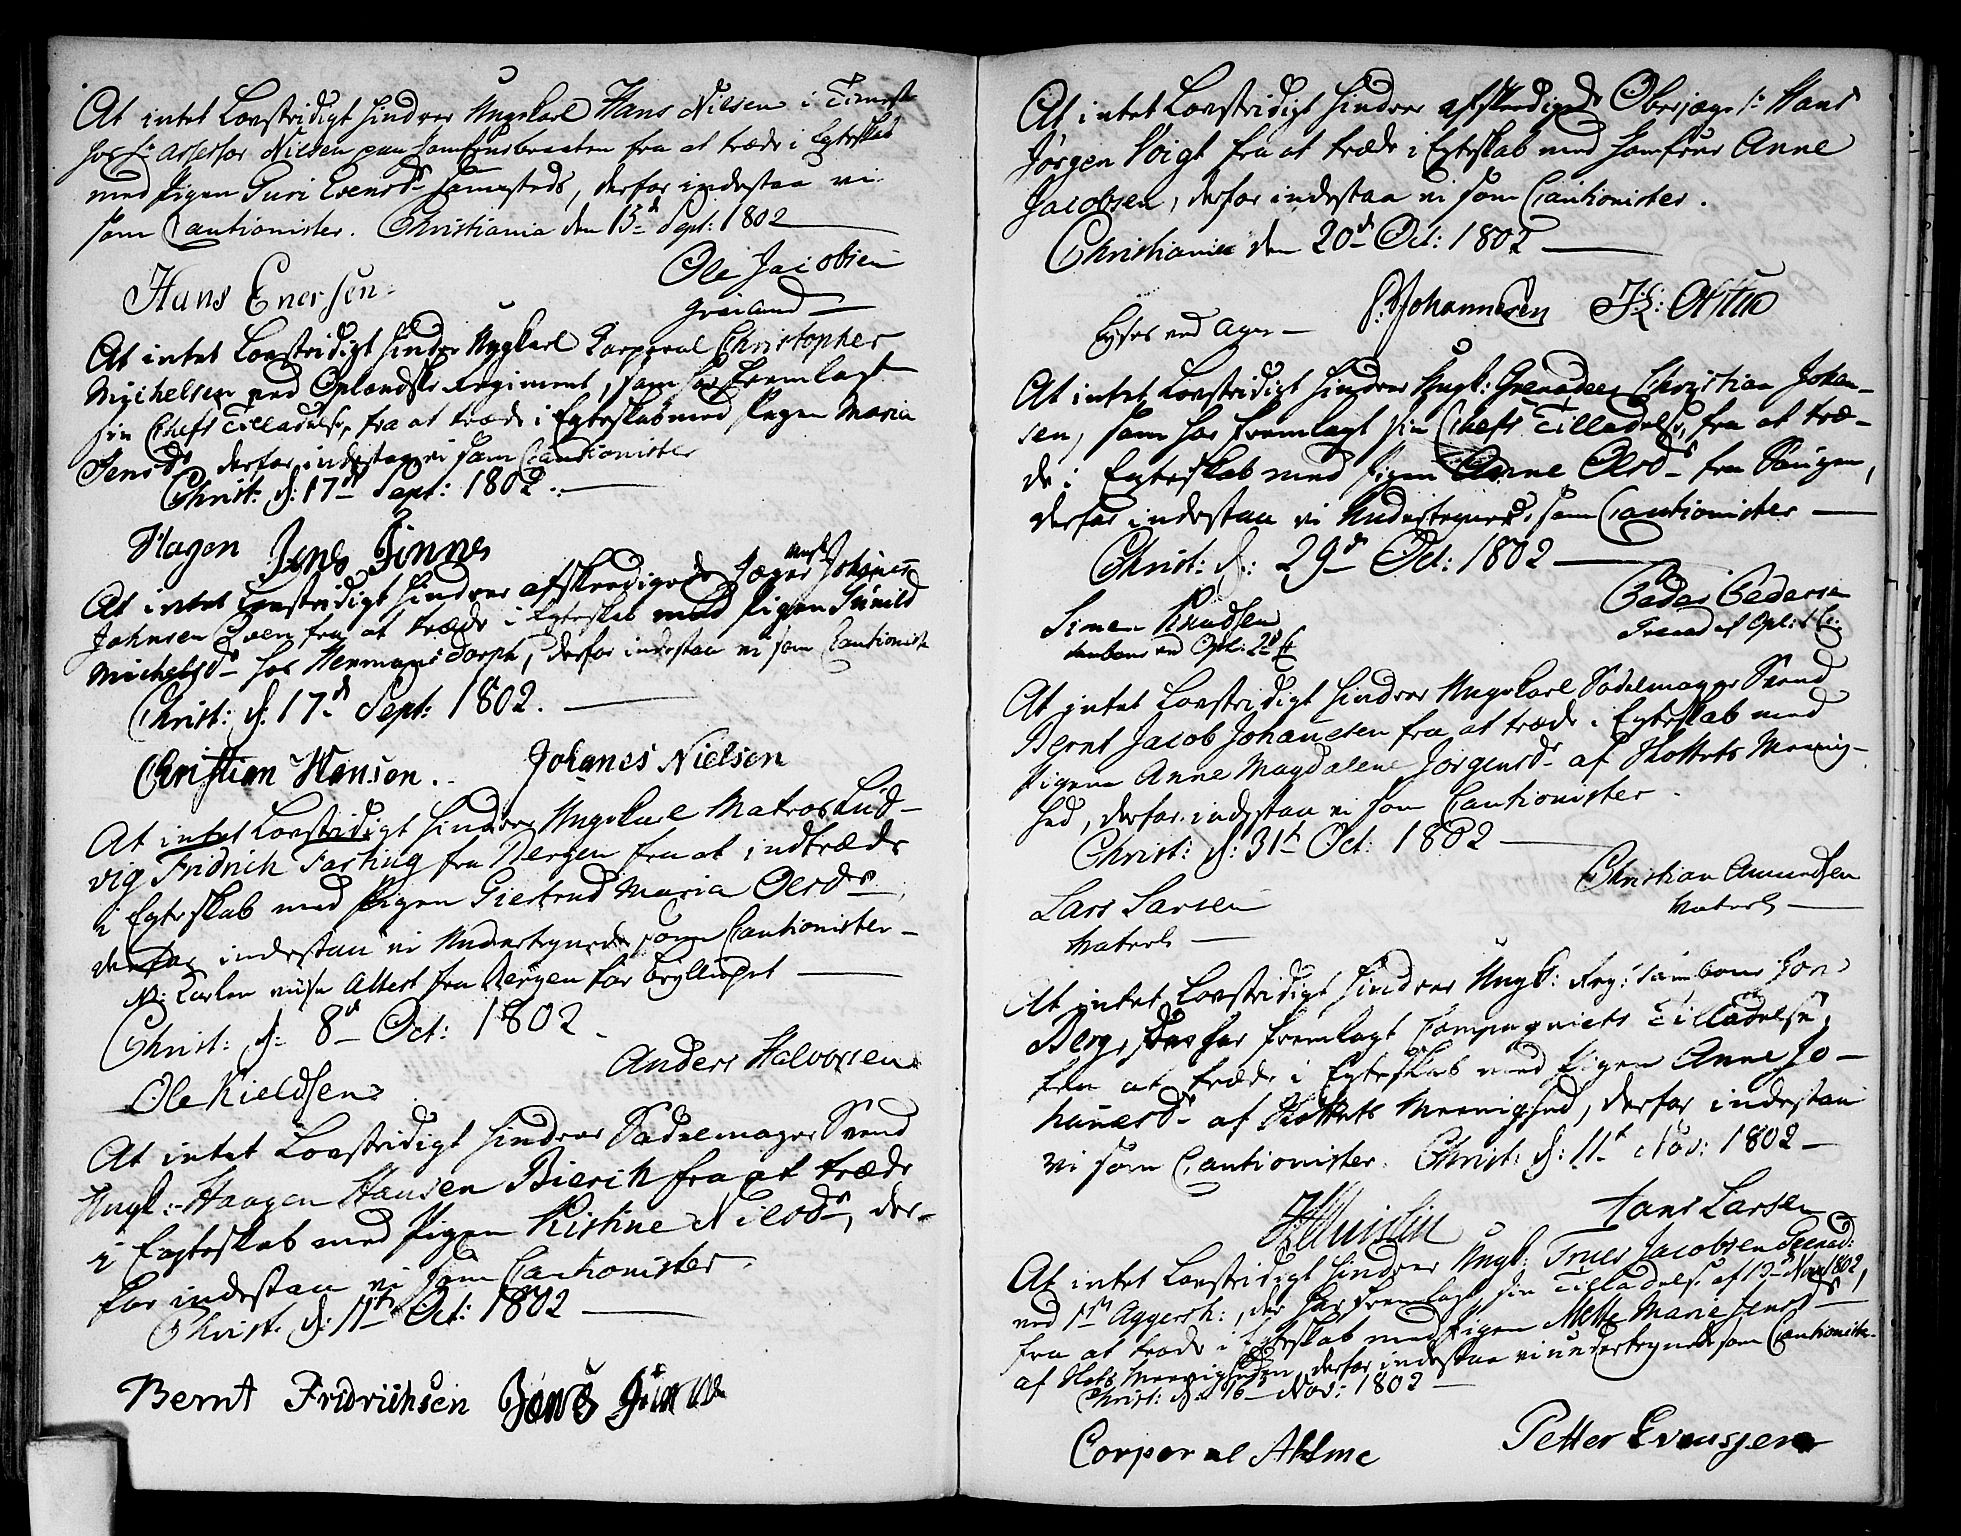 At intet Lovstridigt hindrer Ungkarl Hans Nilsen i Tieneste
hos Hr Assessor Nilsen paa fra at træde i Egteskab
med Pigen Guri Evensdr sammesteds, derfor indestaa vi
som Cautionister. Christiania den 15d Sept: 1802
Hans Enersen
Ole Jacobsen
At intet Lovstridigt hindrer Ungkarl Corporal Christopher
Michelsen ved Oplandske Regiment, som har fremlagt
sin Chefs Tilladelse, fra at træde i Egteskab med Pigen Maria
Jensdr derfor indestaa vi som Cautionister
Christ: d: 17d Sept: 1802.
Hagen Jens Finnes
At intet Lovstridigt hindrer afskeedigede Jæger Ungk: Johanes
Johnsen fra at træde i Egteskab med Pigen Gunild
Michelsdr hos Hermansdorph, derfor indestaa vi som Cautionist
Christ: d: 17d Sept: 1802.
Christian Hansen.
Johanes Nielsen
At intet Lovstridigt hindrer Ungekarl Matros Lud-
vig Fridrich Fasting fra Bergen fra at indtræde
i Egteskab med Pigen Giertrud Maria Olsdr
derfor indestaa vi Undertegnede som Cautionister -
NB: Karlen viise Attest fra Bergen for Bryllupet
Christ: d: 8d Oct: 1802
Anders Halvorsen
Ole Kieldsen
At intet Lovstridigt hindrer Sadelmager Svend
Ungk: Haagen Hansen Bierch fra at træde
i Egteskab med Pigen Kistine Nilsdr, der-
for indestaa vi som Cautionister.
Christ: d: 11te Oct: 1802
Bernt Fridrichsen
At intet Lovstridigt hindrer afskeedigede Oberjæger Hr Hans
Jørgen Voigt fra at træde i Egteskab med Jomfrue Anne
Jacobsen, derfor indestaa vi som Cautionister.
Christiania den 20d Oct: 1802
P: Johannesen
Lyses ved Ager
At intet Lovstridigt hindrer Ungk: Grenadeer Christian Johan-
sen, som har fremlagt sin Chefs Tilladelse, fra at træ-
de i Egteskab med Pigen Anne Olsdr fra Saugen,
derfor indestaa vi Undertegnede som Cautionister
Christ: d: 29d Oct: 1802
Simen Knudsen
Tambour ved Opl: 2d
Peder Pedersen
Grenad af Opl:
At intet Lovstridigt hindrer Ungekarl Sadelmager Svend
Bernt Jacob Johansen fra at træde i Egteskab med
Pigen Anne Magdalene Jørgensdr af Slottets Meenig-
hed, derfor indestaa vi som Cautionister
Christ: d: 31te Oct: 1802
Lars Larsen
Christian Amundsen
At intet Lovstridigt hindrer Ungk: Reg: Tambour Jon
Berg, som har fremlagt Compagniets Tilladelse,
fra at træde i Egteskab med Pigen Anne Jo-
hanesdr af Slottets Meenighed, derfor indestaa
vi som Cautionister. Christ: d: 11te Nov: 1802
Hans Larsen
At intet Lovstridigt hindrer Ungk: Truels Jacobsen Grenad:
ved 1ste Aggersh:, der har fremlagt sin Tilladelse af 12 Nov 1802,
fra at træde i Egteskab med Pigen Mette Marie Jensdr,
af Slots Meenigheden, derfor indestaa vi undertegnede som Cautionister.
Christ: d: 16 Nov: 1802
Corporal Ahlme
Petter Evensen